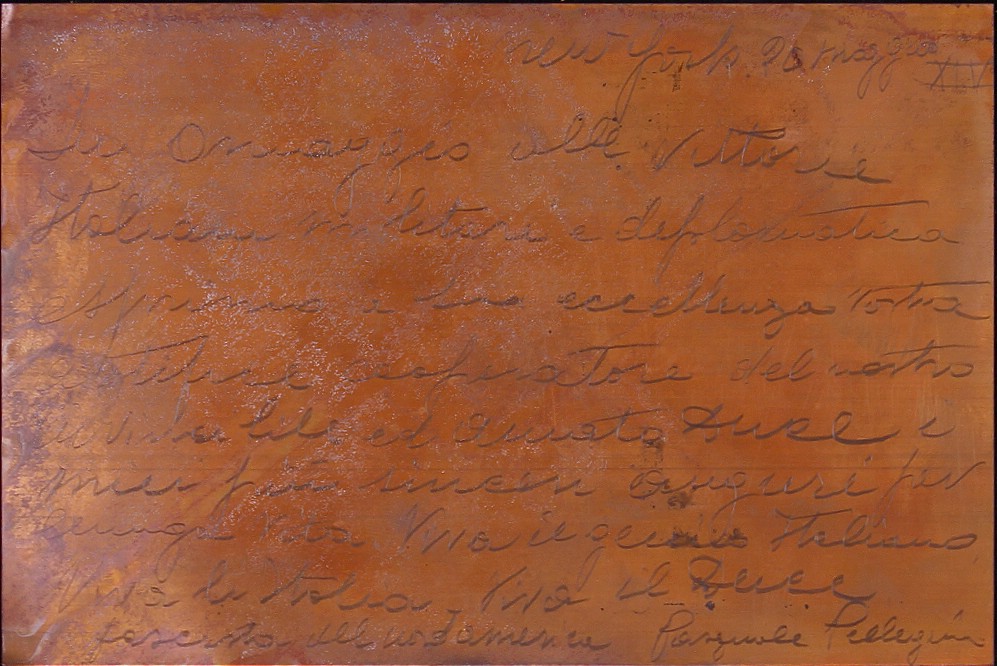 New York 20 maggio XIV
In Omaggio alle Vittorie
Italiana militare e deplomatica
esprimo a Sua eccellenza vostra
cooperatore del nostro
ed Amato Duce i
miei più sinceri auguri per
lunga vita Viva il genio Italiano
Viva la Italia Viva il Duce
fascista del nord America Pasquale Pellegrin